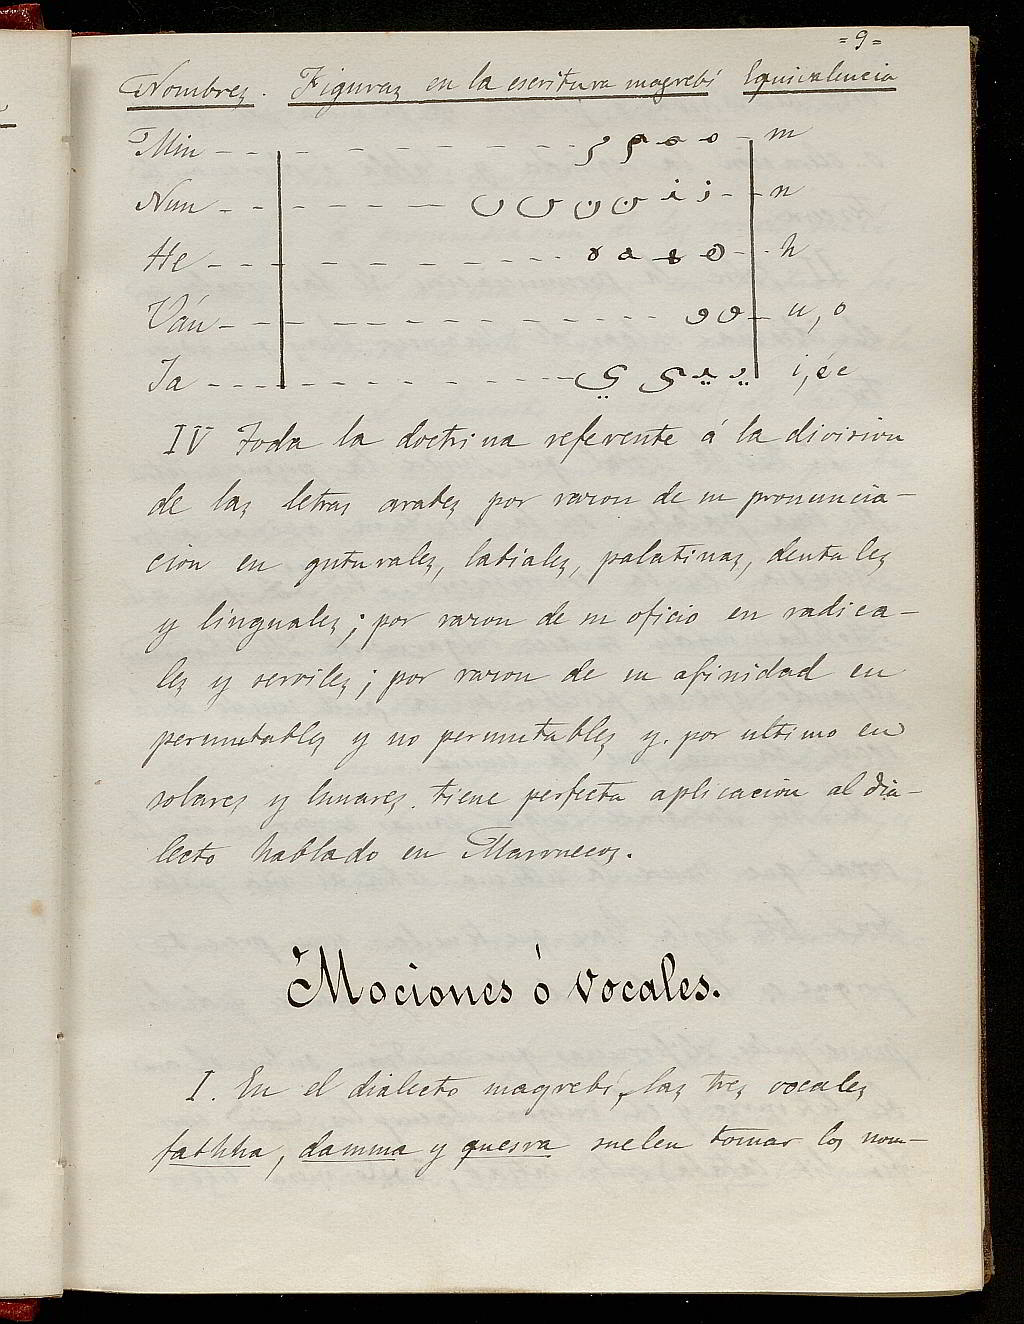 = 9 =
Nombres. Figuras en la escritura magrebí Equivalencia
Min م م م ـمـ مـ m
Nun ن ن ن ن نـ نـ n
He ه ـه ـهـ هـ h
Váu و و u, o
Ia ي ي يـ يـ i, é e
IV Toda la doctrina referente á la division
de las letras arabes por razon de su pronuncia-
cion en guturales, labiales, palatinas, dentales
y linguales; por razon de su oficio en radica-
les y serviles; por razon de su afinidad en
permutables y no permutables y. por ultimo en
solares y lunares. tiene perfecta aplicacion al dia-
lecto hablado en Marruecos.
Mociones ó Vocales.
I. En el dialecto magrebí, las tres vocales
fathha, damma y quesra suelen tomar los nom-